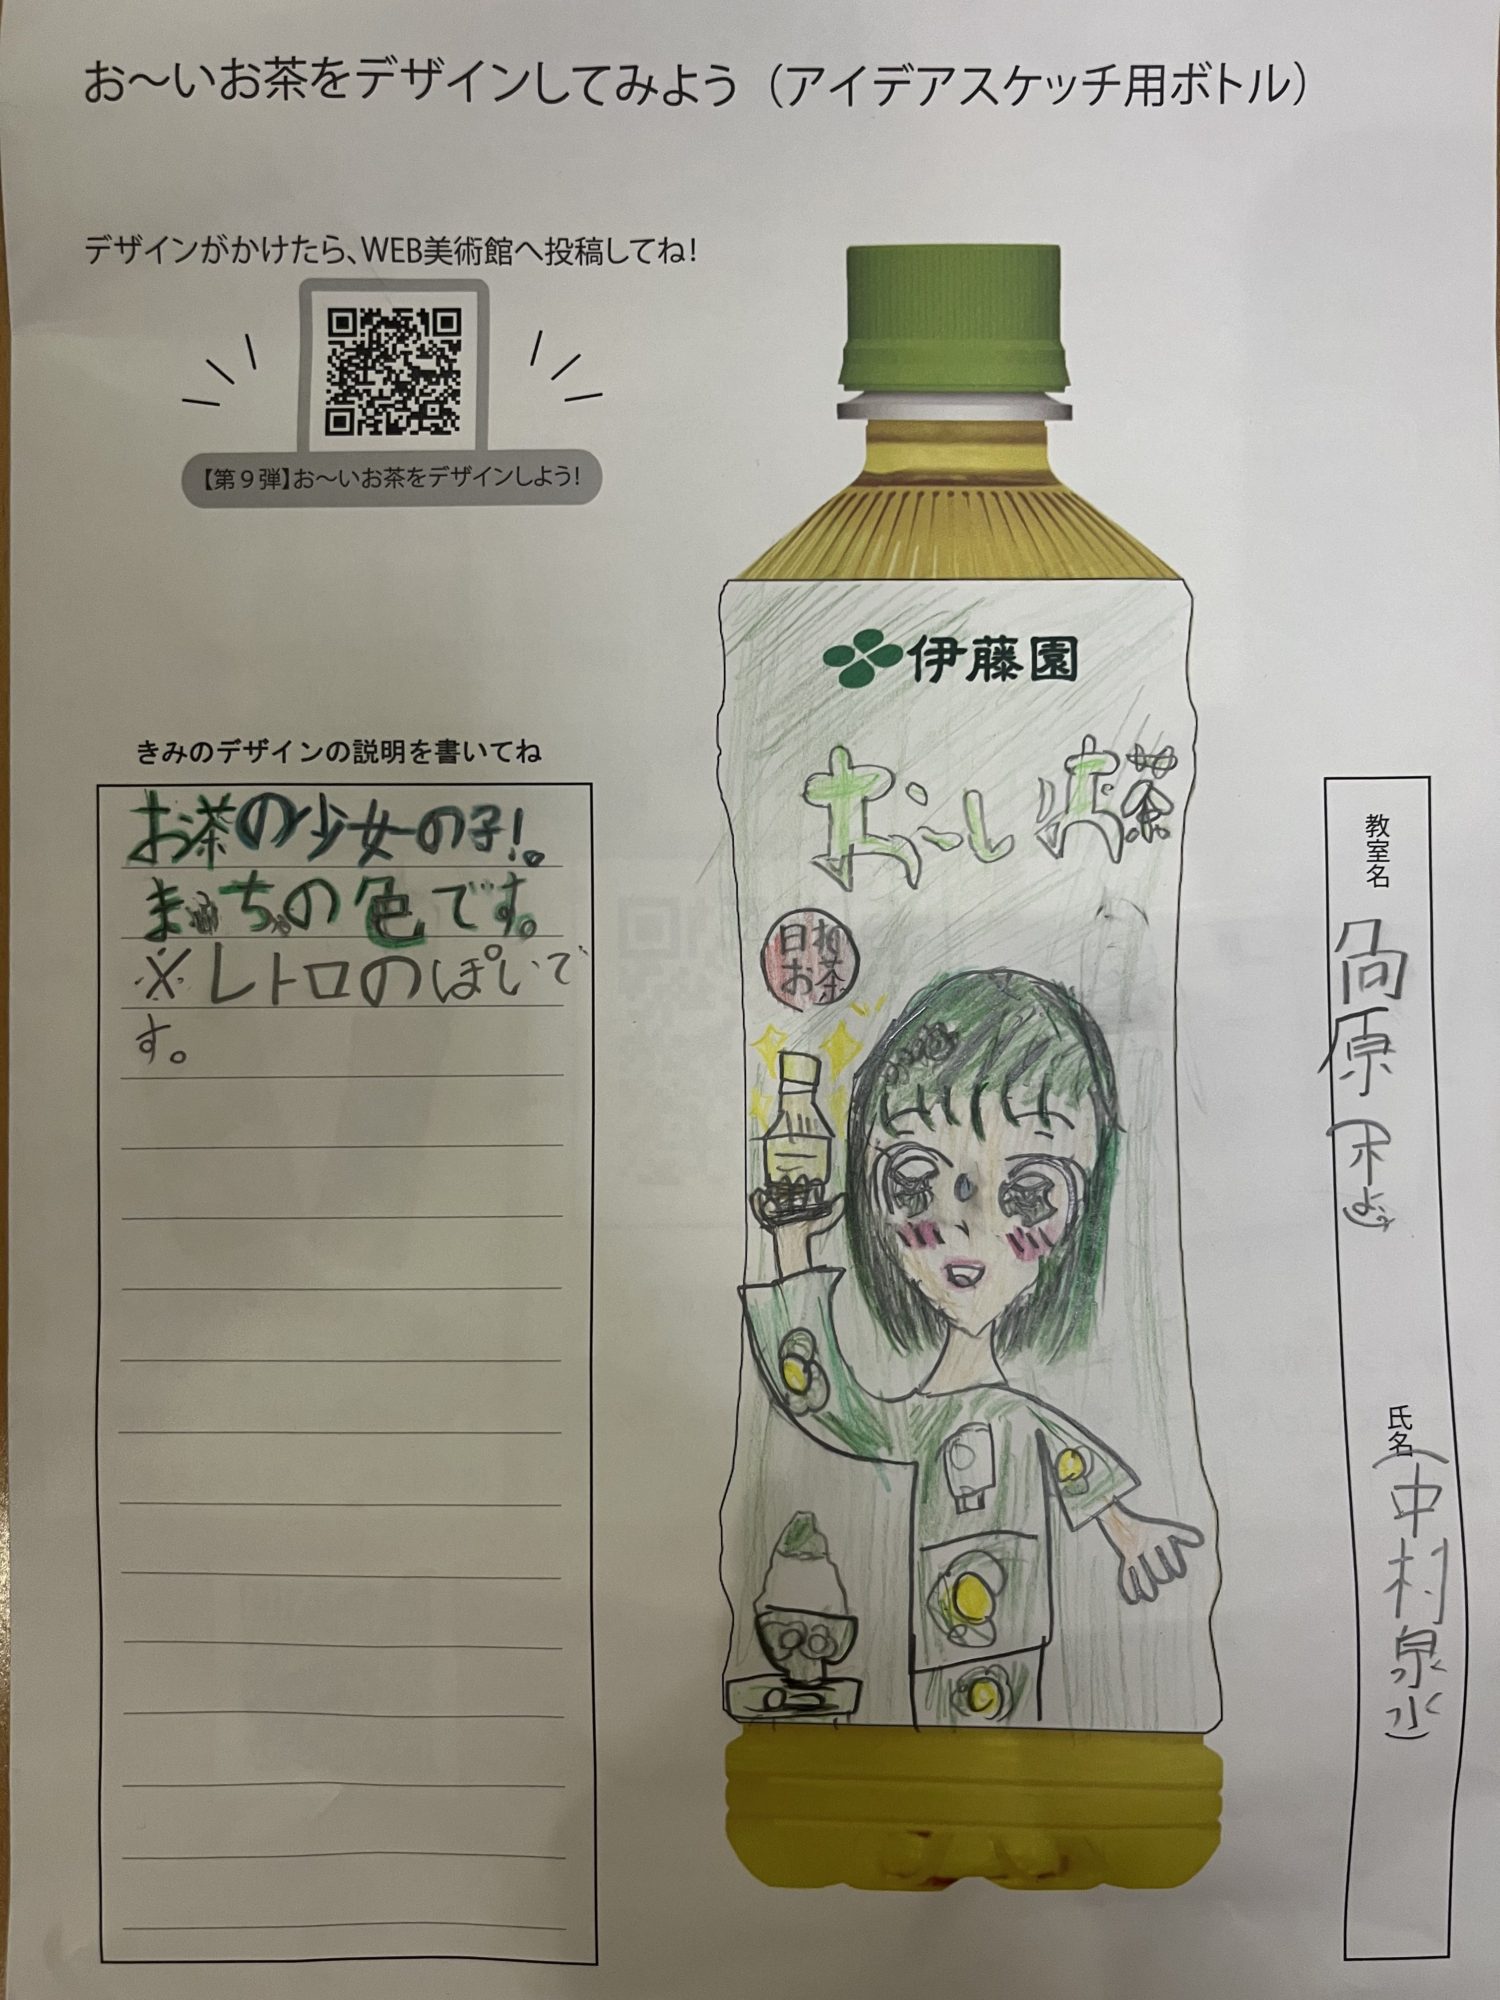 お～いお茶をデザインしてみよう（アイデアスケッチ用ボトル）
デザインがかけたら、WEB美術館へ投稿してね！
【第９弾】お～いお茶をデザインしよう！
伊藤園
お～いお茶
日本
お茶
きみのデザインの説明を書いてね
お茶の少女の子！。
まっちの色です。
※レトロのぽいで
す。
教室名
原
氏名
(中村泉水)